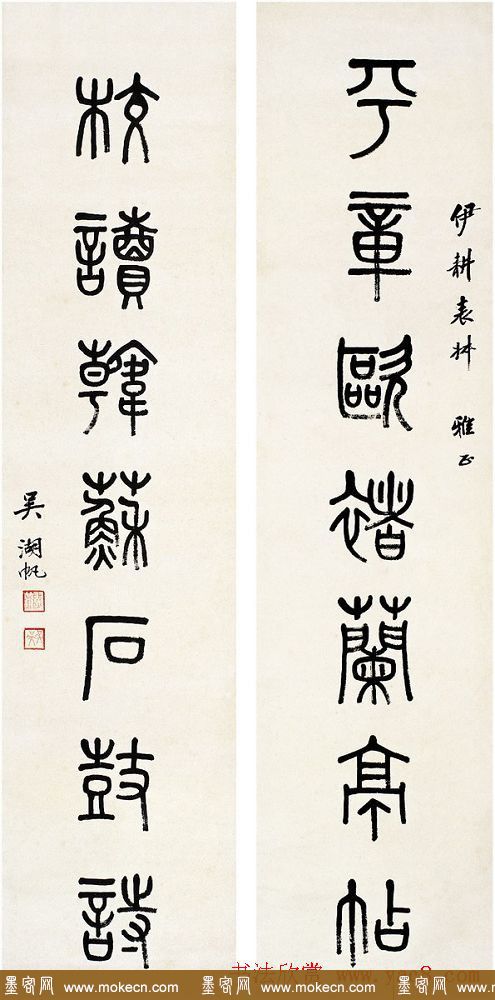 伊耕表叔 雅正
平章歐褚蘭亭帖
校讀韓蘇石鼓詩
吳湖帆
书法欣赏
墨客网 www.mokecn.com 墨客网 www.mokecn.com 墨客网 www.mokecn.com